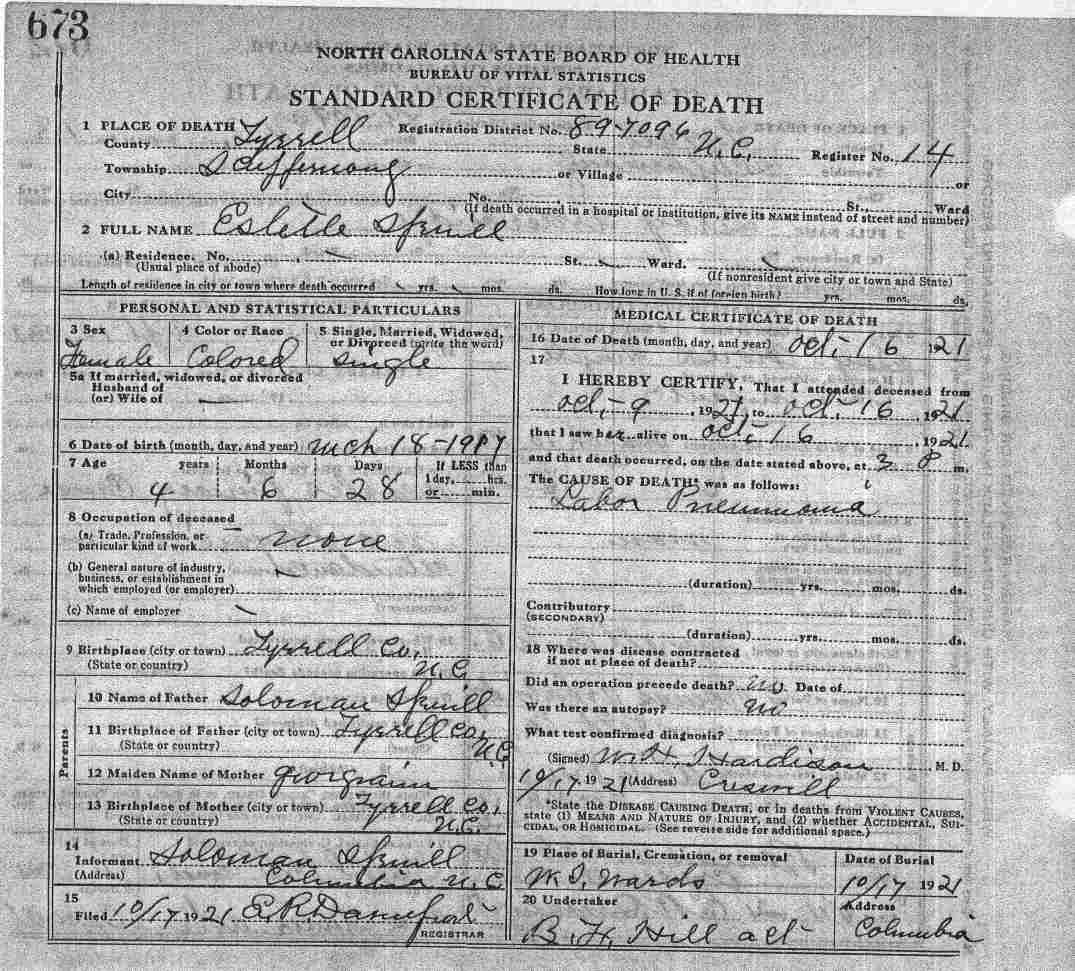 673
NORTH CAROLINA STATE BOARD OF HEALTH
BUREAU OF VITAL STATISTICS
STANDARD CERTIFICATE OF DEATH
1 PLACE OF DEATH Registration District No. 89-7096
County Tyrrell State N.C. Register No. 14
Township Scuppernong or Village or
City No. St. Ward
(If death occurred in a hospital or institution, give its NAME instead of street and number)
2 FULL NAME Estelle Spruill
(a) Residence. No. St. Ward.
(Usual place of abode) (If nonresident give city or town and State)
Length of residence in city or town where death occurred yrs. mos. ds. How long in U. S. if of foreign birth? yrs. mos. ds.
PERSONAL AND STATISTICAL PARTICULARS
3 Sex 4 Color or Race 5 Single, Married, Widowed, or Divorced (write the word)
Female Colored Single
5a If married, widowed, or divorced
Husband of
(or) Wife of
6 Date of birth (month, day, and year) Mch 18-1917
7 Age years Months Days If LESS than
1 day, hrs.
4 6 28 or min.
8 Occupation of deceased
(a) Trade, Profession, or
particular kind of work none
(b) General nature of industry,
business, or establishment in
which employed (or employer)
(c) Name of employer
9 Birthplace (city or town) Tyrrell Co,
(State or country) N.C.
Parents
10 Name of Father Soloman Spruill
11 Birthplace of Father (city or town) Tyrrell Co,
(State or country) N.C.
12 Maiden Name of Mother
13 Birthplace of Mother (city or town) Tyrrell Co,
(State or country) N.C.
14
Informant Soloman Spruill
(Address) Columbia N.C.
15
Filed 10/17 1921 E.R.
REGISTRAR
MEDICAL CERTIFICATE OF DEATH
16 Date of Death (month, day, and year) Oct, 16 1921
17
I HEREBY CERTIFY, That I attended deceased from
Oct, -9, 1921, to Oct. 16, 1921
that I saw her alive on Oct, 16, 1921
and that death occurred, on the date stated above, at 3 P m.
The CAUSE OF DEATH* was as follows:
Labor Pneumonia
(duration) yrs. mos. ds.
Contributory
(SECONDARY)
(duration) yrs. mos. ds.
18 Where was disease contracted
if not at place of death?
Did an operation precede death? no Date of
Was there an autopsy? no
What test confirmed diagnosis?
(Signed) W.H. Hardison M. D.
10/17 1921 (Address) Creswell
*State the DISEASE CAUSING DEATH, or in deaths from VIOLENT CAUSES,
state (1) MEANS AND NATURE OF INJURY, and (2) whether ACCIDENTAL, SUI-
CIDAL, OR HOMICIDAL. (See reverse side for additional space.)
19 Place of Burial, Cremation, or removal Date of Burial
Wards 10/17 1921
20 Undertaker Address
B. H. Hill Columbia